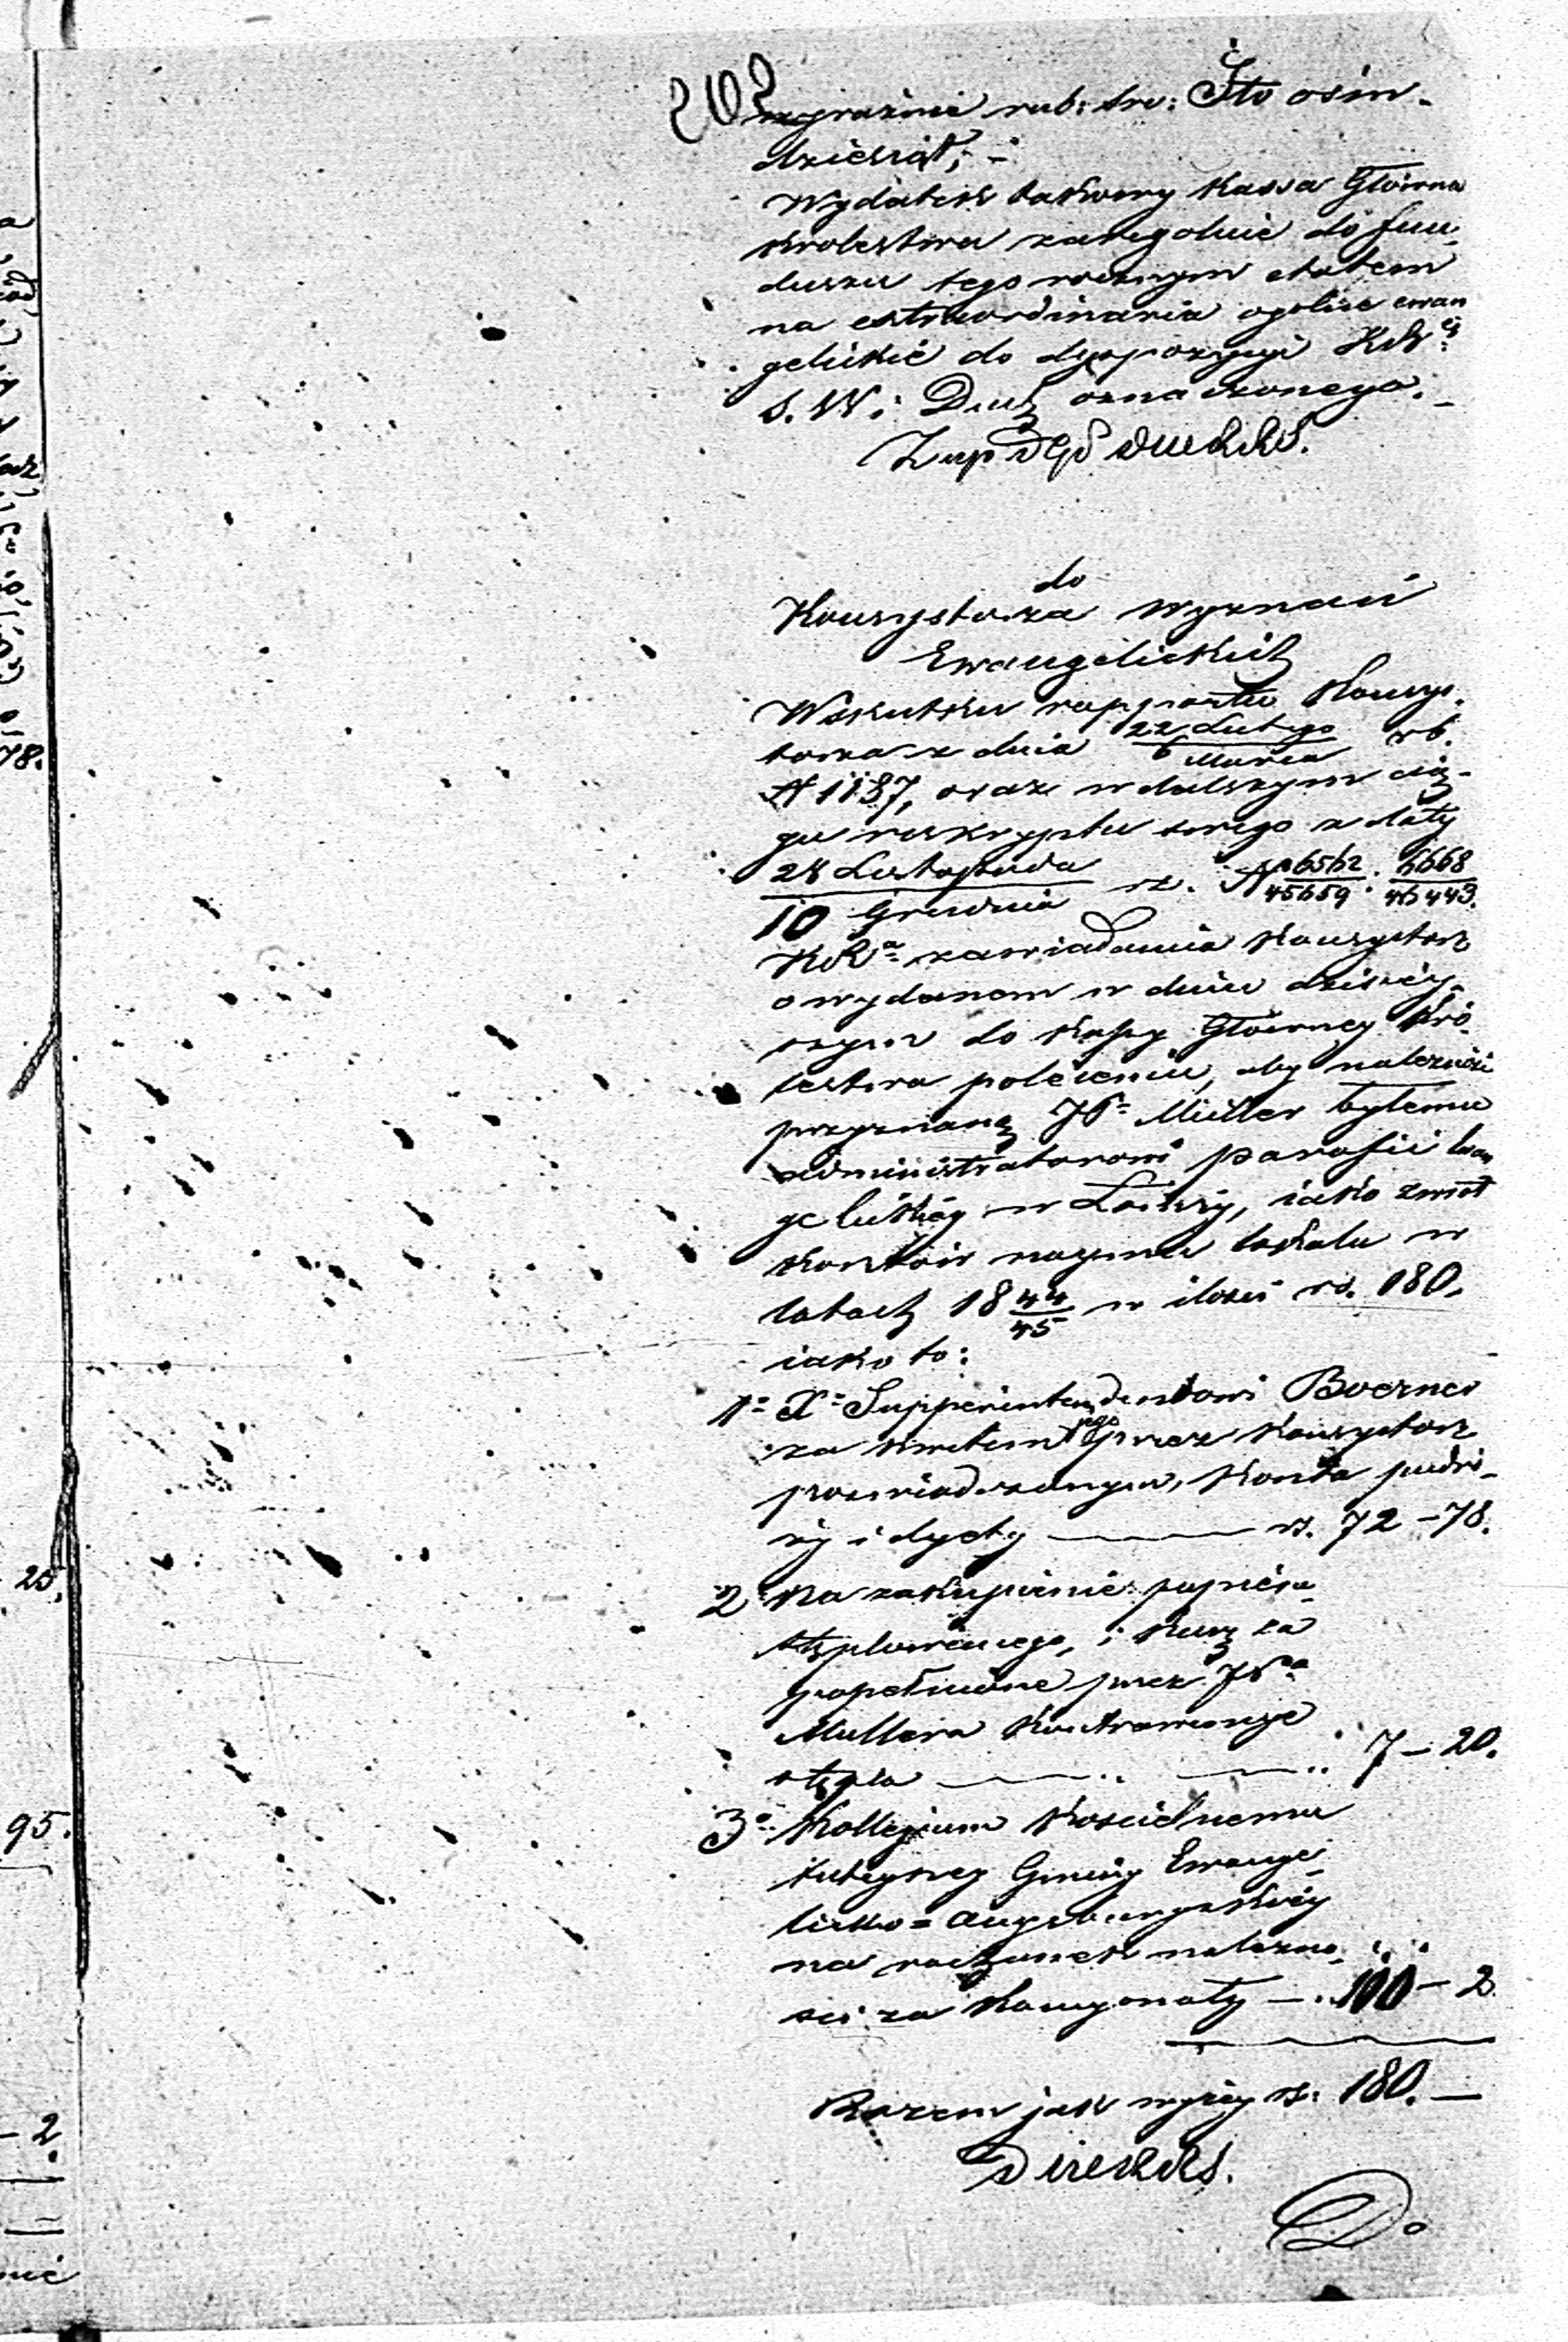 202
wyraźnie rub: sre: Sto ośm-
dziesiąt; -
Wydatek takowy Kassa Główna
Królestwa zaregoluie do fun-
duszu tego rocznym etatem
na extraordinaria ogolne ewan
gelickie do dyspozycyi KR:éj
S. W i Duch oznaczonego. -
do
Konsystorza wyznań
Ewangelickich
Wskutku rapportu Konsys-
torza z dnia 22 Lutego / 6 Marca rb.
N 1137, oraz w dalszym cią-
gu reskryptu swego z daty
28 Listopada / 10 Grudnia rz. N 6562/45659. 6668/46443.
KRa zawiadamia Konsystorz
o wydanem w dniu dzisiéy-
szym do Kassy Głównéy Kró-
lestwa poleceniu, aby należność
przyznaną JP Müller byłemu
administratorowi parafii Ewan
gelickiéy w Łomży, iako zwrot
kosztów naymu lokalu w
latach 18 44/45 w ilości rs. 180.
iako to:
1o X Supperintendentowi Boerner
za kwitem jego przez Konsystorz
poświadczonym, koszta podró-
ży i dyety — rs. 72 - 78.
2 Na zakupienie papieru
stęplowanego, i karę za
popełnione przez JPa
Mullera kontrawencye
stępla — .. — .. 7 - 20.
3o Kollegium Kościelnemu
tuteyszey Gminy Ewange-
licko = augsburgskiéy
na rachunek należno-
ści za kompenaty — . 100 - 2
Razem jak wyżéy rs: 180. —